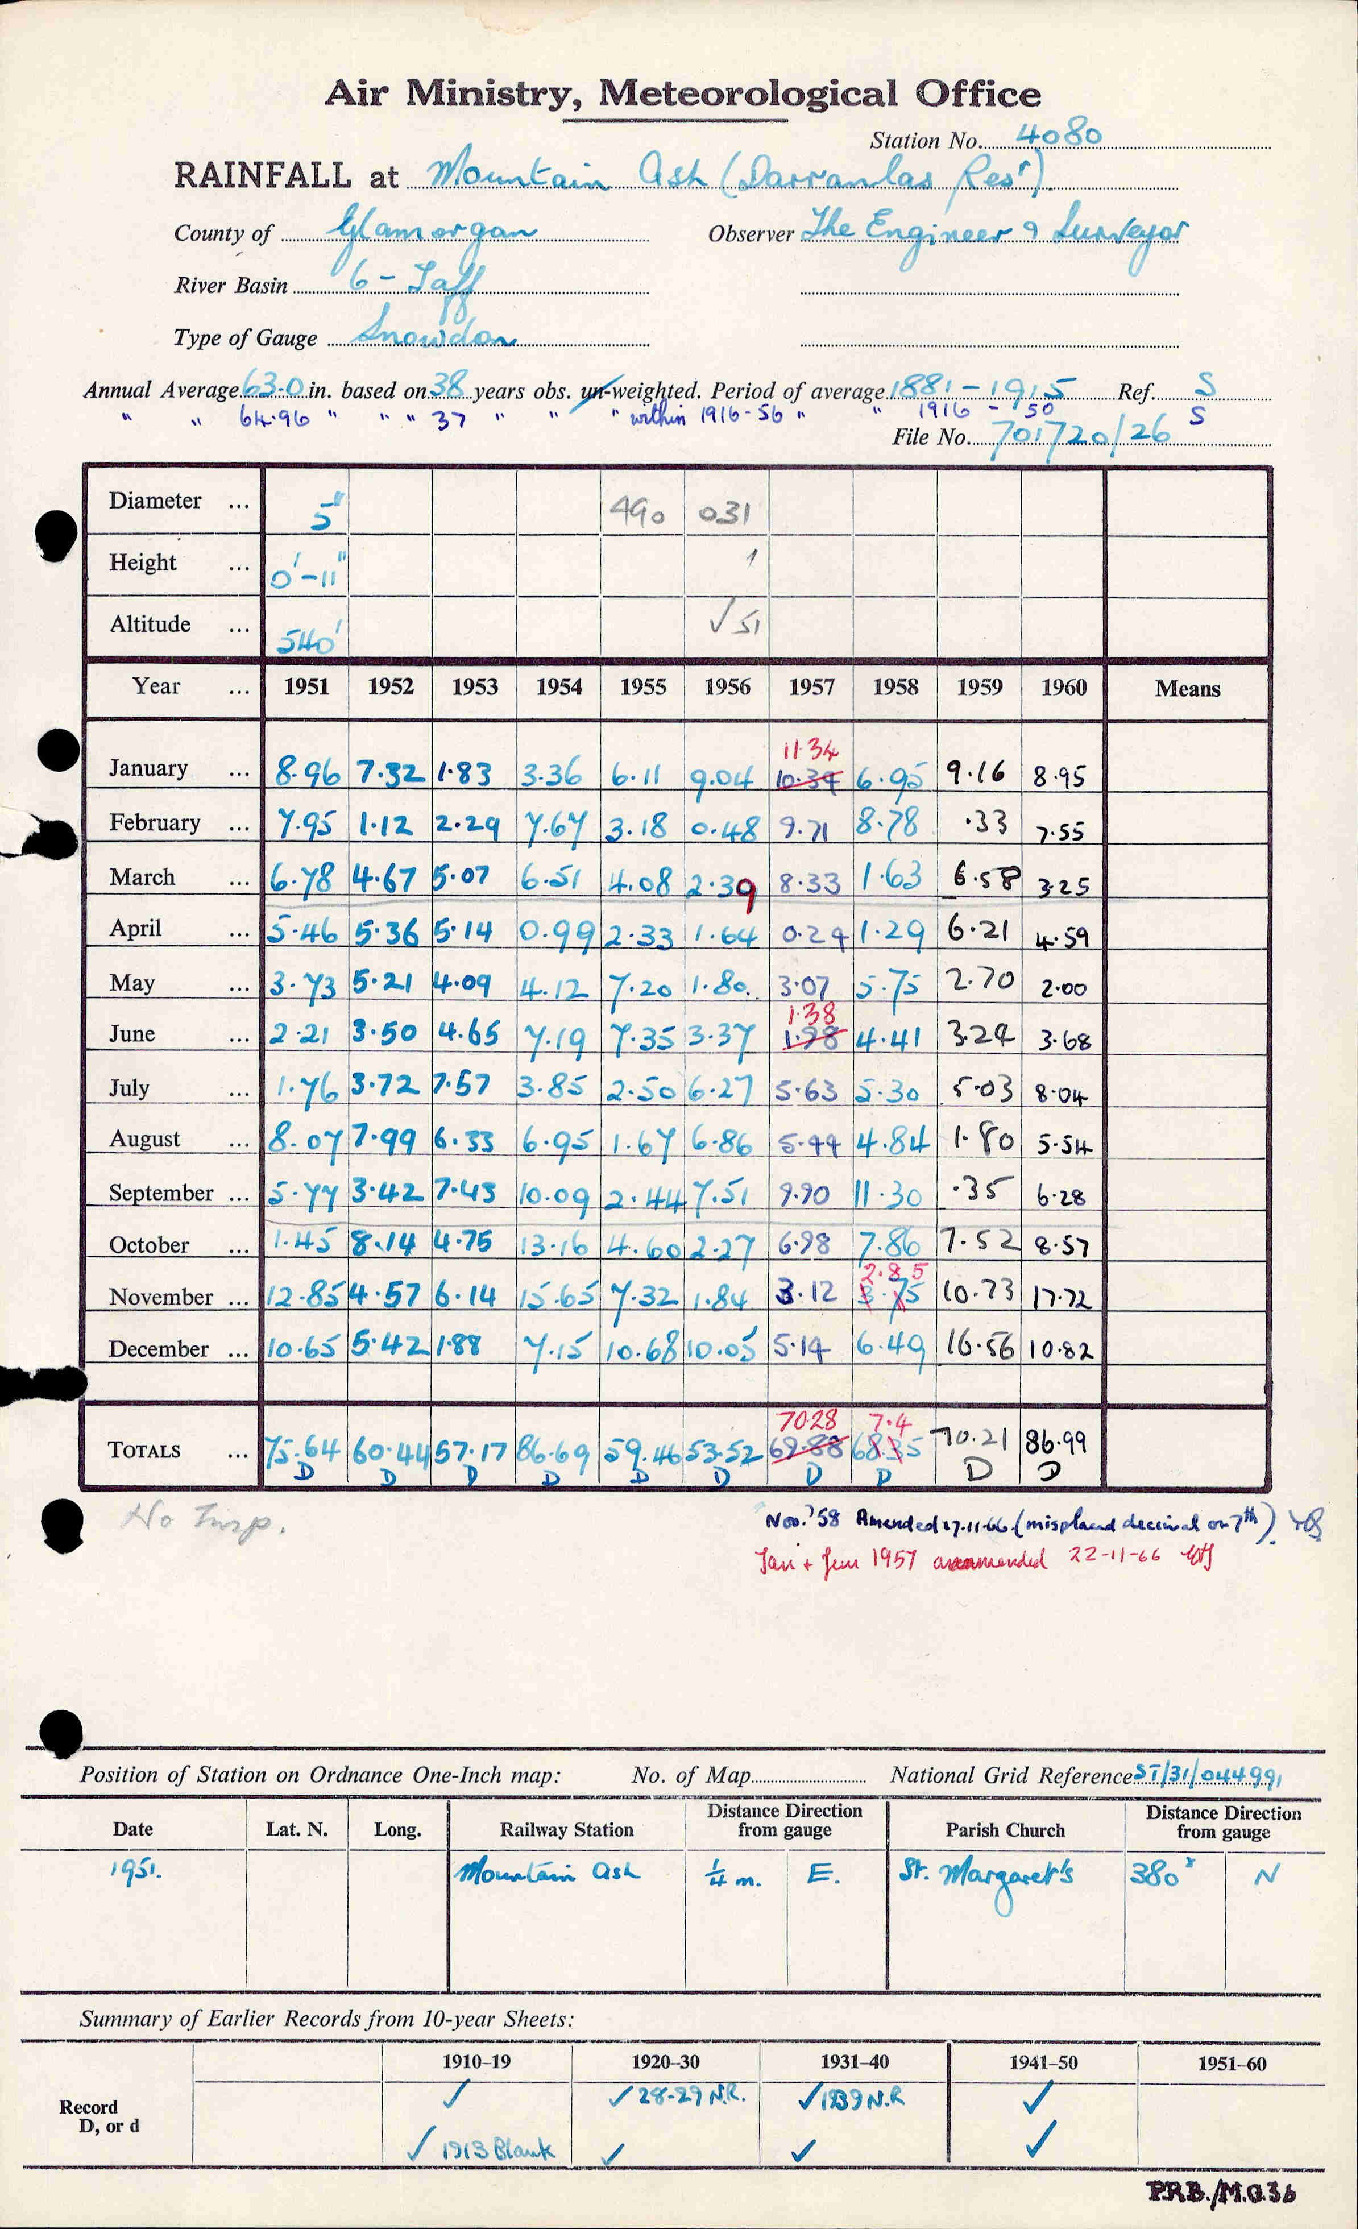 Air Ministry, Meteorological Office
Station No. 4080
RAINFALL at Mountain Ash (Darranlas Resr).
County of Glamorgan Observer The Engineer & Surveyor
River Basin 6 - Taff
Type of Gauge Snowdon
Annual Average 63.0 in. based on 38 years obs. un-weighted. Period of average 1881 - 1915 Ref. S
" " 64.96 " " " 37 " " " within 1916-56 " " 1916 - 50 S
File No. 701720/26
Diameter ... 5" 490 031
Height ... 0'-11" 1
Altitude ... 540' √ 51
Year ... 1951 1952 1953 1954 1955 1956 1957 1958 1959 1960 Means
11.34
January ... 8.96 7.32 1.83 3.36 6.11 9.04 10.34 6.95 9.16 8.95
February ... 7.95 1.12 2.29 7.67 3.18 0.48 9.71 8.78 .33 7.55
March ... 6.78 4.67 5.07 6.51 4.08 2.39 8.33 1.63 6.58 3.25
April ... 5.46 5.36 5.14 0.99 2.33 1.64 0.24 1.29 6.21 4.59
May ... 3.73 5.21 4.09 4.12 7.20 1.80 3.07 5.75 2.70 2.00
1.38
June ... 2.21 3.50 4.65 7.19 7.35 3.37 1.98 4.41 3.24 3.68
July ... 1.76 3.72 7.57 3.85 2.50 6.27 5.63 5.30 5.03 8.04
August ... 8.07 7.99 6.33 6.95 1.67 6.86 5.44 4.84 1.80 5.54
September ... 5.77 3.42 7.43 10.09 2.44 7.51 9.90 11.30 .35 6.28
October ... 1.45 8.14 4.75 13.16 4.60 2.27 6.98 7.86 7.52 8.57
2.85
November ... 12.85 4.57 6.14 15.65 7.32 1.84 3.12 3.75 10.73 17.72
December ... 10.65 5.42 1.88 7.15 10.68 10.05 5.14 6.49 16.56 10.82
70.28 7.4
TOTALS ... 75.64 60.44 57.17 86.69 59.46 53.52 69.88 68.35 70.21 86.99
D D D D D D D D D D
No Insp.
Nov. '58 Amended 27.11.66 (misplaced decimal on 7th)
Jan + Jun 1957 ammended 22-11-66
Position of Station on Ordnance One-Inch map: No. of Map National Grid Reference ST/31/044991
Date Lat. N. Long. Railway Station Distance Direction from gauge Parish Church Distance Direction from gauge
1951. Mountain Ash ¼ m. E. St. Margaret's 380x N
Summary of Earlier Records from 10-year Sheets:
1910–19 1920–30 1931–40 1941–50 1951–60
Record ✓ ✓ 28-29 N.R. ✓ 1939 N.R ✓
D, or d ✓ 1913 Blank ✓ ✓ ✓
P.R.B./M.O.36